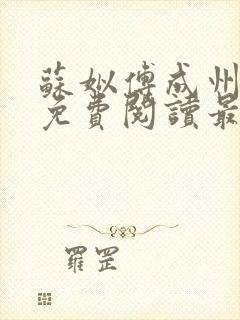 蘇姒傅成州
免費閱讀最
羅罡